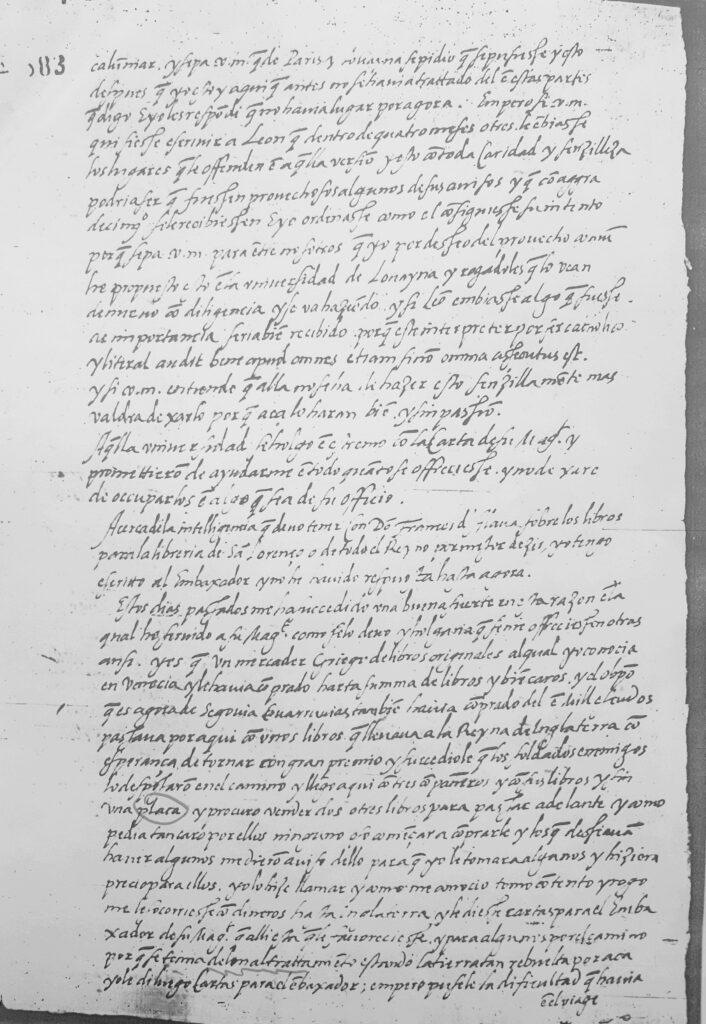 183
calumar. y sepa v.m. q̃ de Paris y Lovayna se pidio q̃ se pusiesse y esto
despues q̃ yo estoy aqui q̃ antes no se havia trattado del ẽ estas partes
q̃ digo E yo les respõdi q̃ no havia lugar por agora. Empero si v.m.
quisiesse escrivir a Leon q̃ dentro de quatro meses o tres le ẽbiasse
los lugares q̃ le offenden ẽ aq̃lla versiõ y esto cõ toda Caridad y senzilleza
podria ser q̃ fuessen provechosos algunos de sus avisos y q̃ cõ aggra
decimẽto se recibiessen E yo ordinasse como el cõsiguiesse su intento
porq̃ sepa v.m. para ẽtre nosotros q̃ yo por desseo del provecho comũ
he propuesto esto ẽ la universidad de Lovayna y rogadoles q̃ lo vean
de nuevo cõ diligencia y se va haziẽdo y si Leõ embiasse algo q̃ fuesse
de importancia seria biẽ recibido porq̃ este interprete por ser catholico
y literal audit bene apud omnes etiam si nõ omnia assecutus est.
y si v.m. entiende q̃ alla no se ha de hazer esto senzillamẽte mas
valdra dexarlo porq̃ aca lo haran biẽ y sin passiõ.
Aq̃lla universidad se holgo ẽ estremo cõ la Carta de su Mag.ᵈ y
promettierõ de ayudarme ẽ todo quãto se offreciesse y no dexare
de occuparlos ẽ algo q̃ sea de su officio.
Acerca de la intelligencia q̃ devo tener cõ Dõ Frances d' Alava sobre los libros
para la libreria de Sã Lorenço o de todo el Rey no
escritto al Embaxador y no he havido respuesta hasta agora.
Estos dias passados me ha succedido una buena suerte en esta razon ẽ la
qual he servido a su Mag.ᵈ como se lo devo y holgaria q̃ se me offreciessen otras
ansi. y es q̃ un mercader Griego de libros originales al qual yo conocia
en Venecia y le havia cõprado harta summa de libros y biẽ caros. y el obpo
q̃ es agora de Segovia Covarruvias tambiẽ havia cõprado del ẽ mill escudos
passava por aqui cõ unos libros q̃ llevava a la Reyna de Inglaterra cõ
esperança de tornar con gran premio y succediole q̃ los soldados enemigos
lo despojarõ en el camino y llego aqui cõ tres cõpañeros y cõ sus libros y sin
una placa y procuro vender dos o tres libros para passar adelante y como
pedia tan caro por ellos ninguno osó comẽçar a cõprarle y los q̃ desseavã
haver algunos me dierõ aviso dello para q̃ yo le tomara algunos y hiziera
precio para ellos. yo lo hize llamar y como me conocio tomo cõtento y rogo
me le socorriesse cõ dineros hasta inglaterra y le diesse cartas para el Emba
xador de su Mag.ᵈ q̃ alli esta q̃ le favoreciesse. y para algunos por el camino
porq̃ se temia del mal trattamiẽto estando la tierra tan rebuelta por aca
yo le di luego Cartas para el ẽbaxador; empero pusele la dificultad q̃ havia
ẽ el viage